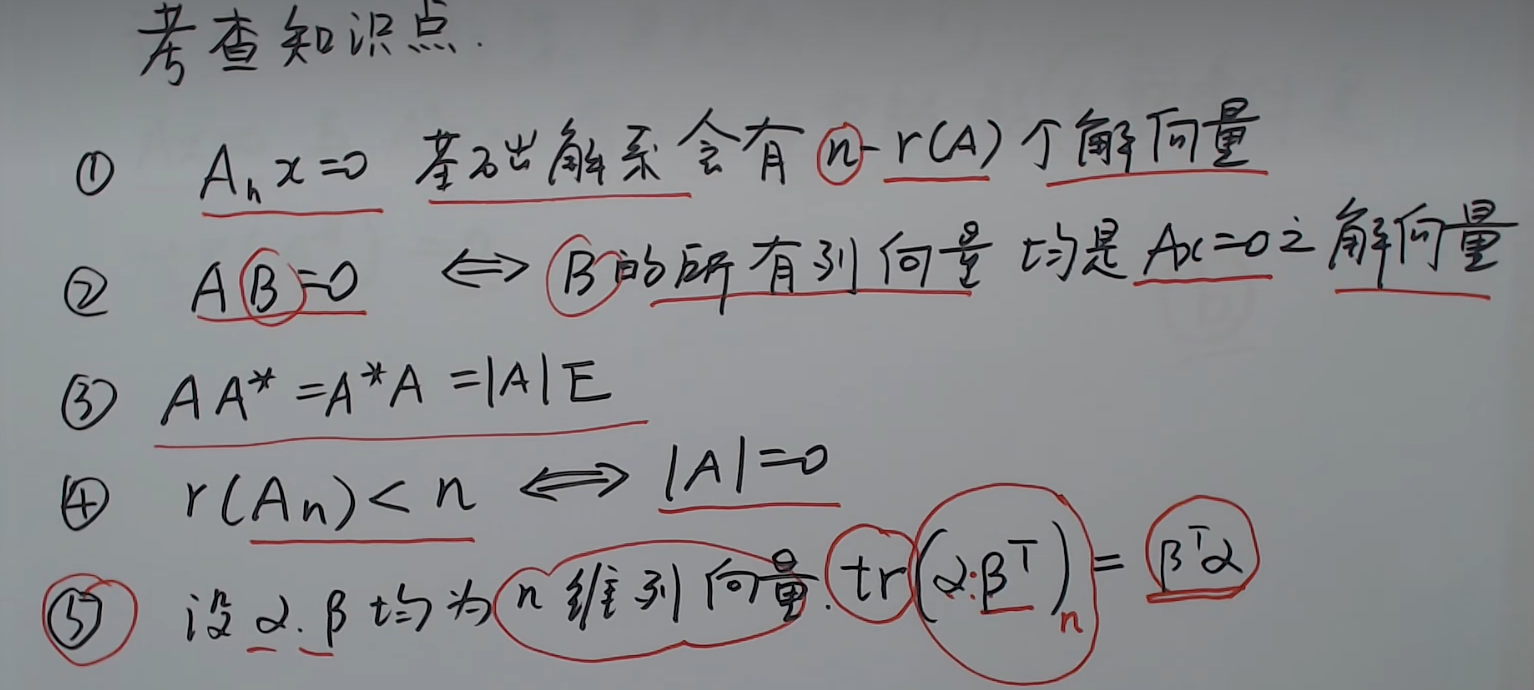 考查知识点.
① Aₙx=0 基础解系含有 n-r(A) 个解向量
② AB=0 ⟺ B的所有列向量均是Ax=0之解向量
③ AA*=A*A=|A|E
④ r(Aₙ)<n ⟺ |A|=0
⑤ 设α.β均为n维列向量.tr(α·βᵀ)ₙ=βᵀα